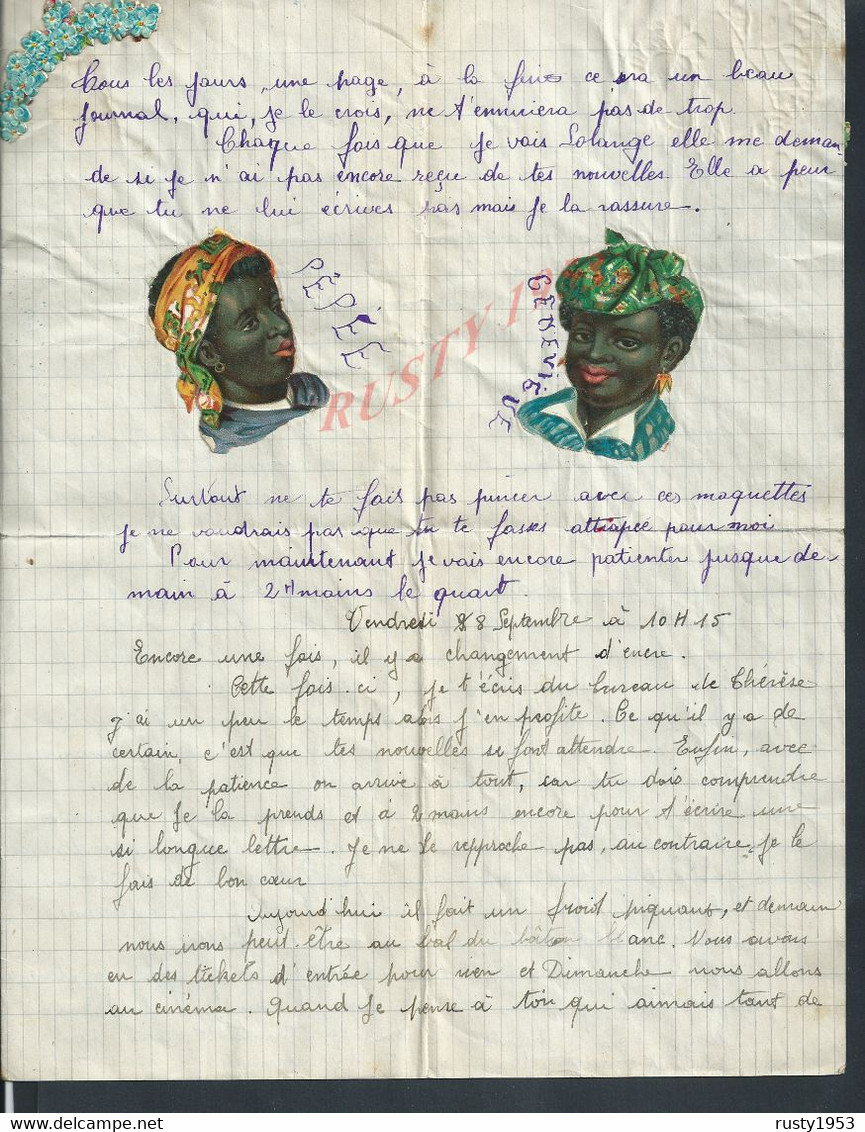 Tous les jours, une page, à la fin ce sera un beau
journal, qui, je le crois, ne t'ennuiera pas de trop.
Chaque fois que je vois Solange elle me deman-
de si je n'ai pas encore reçu de tes nouvelles. Elle a peur
que tu ne lui écrives pas mais je la rassure.
PÉPÉE
GENEVIÈVE
RUSTY 19
Surtout ne te fais pas pincer avec ces maquettes
je ne voudrais pas que tu te fasses attrapée pour moi
Pour maintenant je vais encore patienter jusque de-
main à 2H moins le quart.
Vendredi 28 Septembre à 10H15
Encore une fois, il y a changement d'encre.
Cette fois-ci, je t'écris du bureau de Thérèse
j'ai un peu le temps alors j'en profite. Ce qu'il y a de
certain, c'est que tes nouvelles se font attendre. Enfin, avec
de la patience on arrive à tout, car tu dois comprendre
que je la prends et à 2 mains encore pour t'écrire une
si longue lettre. Je ne le reproche pas, au contraire, je le
fais de bon cœur
Aujourd'hui il fait un froid piquant, et demain
nous irons peut-être au bal du bâton blanc. Nous avons
eu des tickets d'entrée pour rien et Dimanche nous allons
au cinéma. Quand je pense à toi qui aimais tant de
delcampe.net
rusty1953